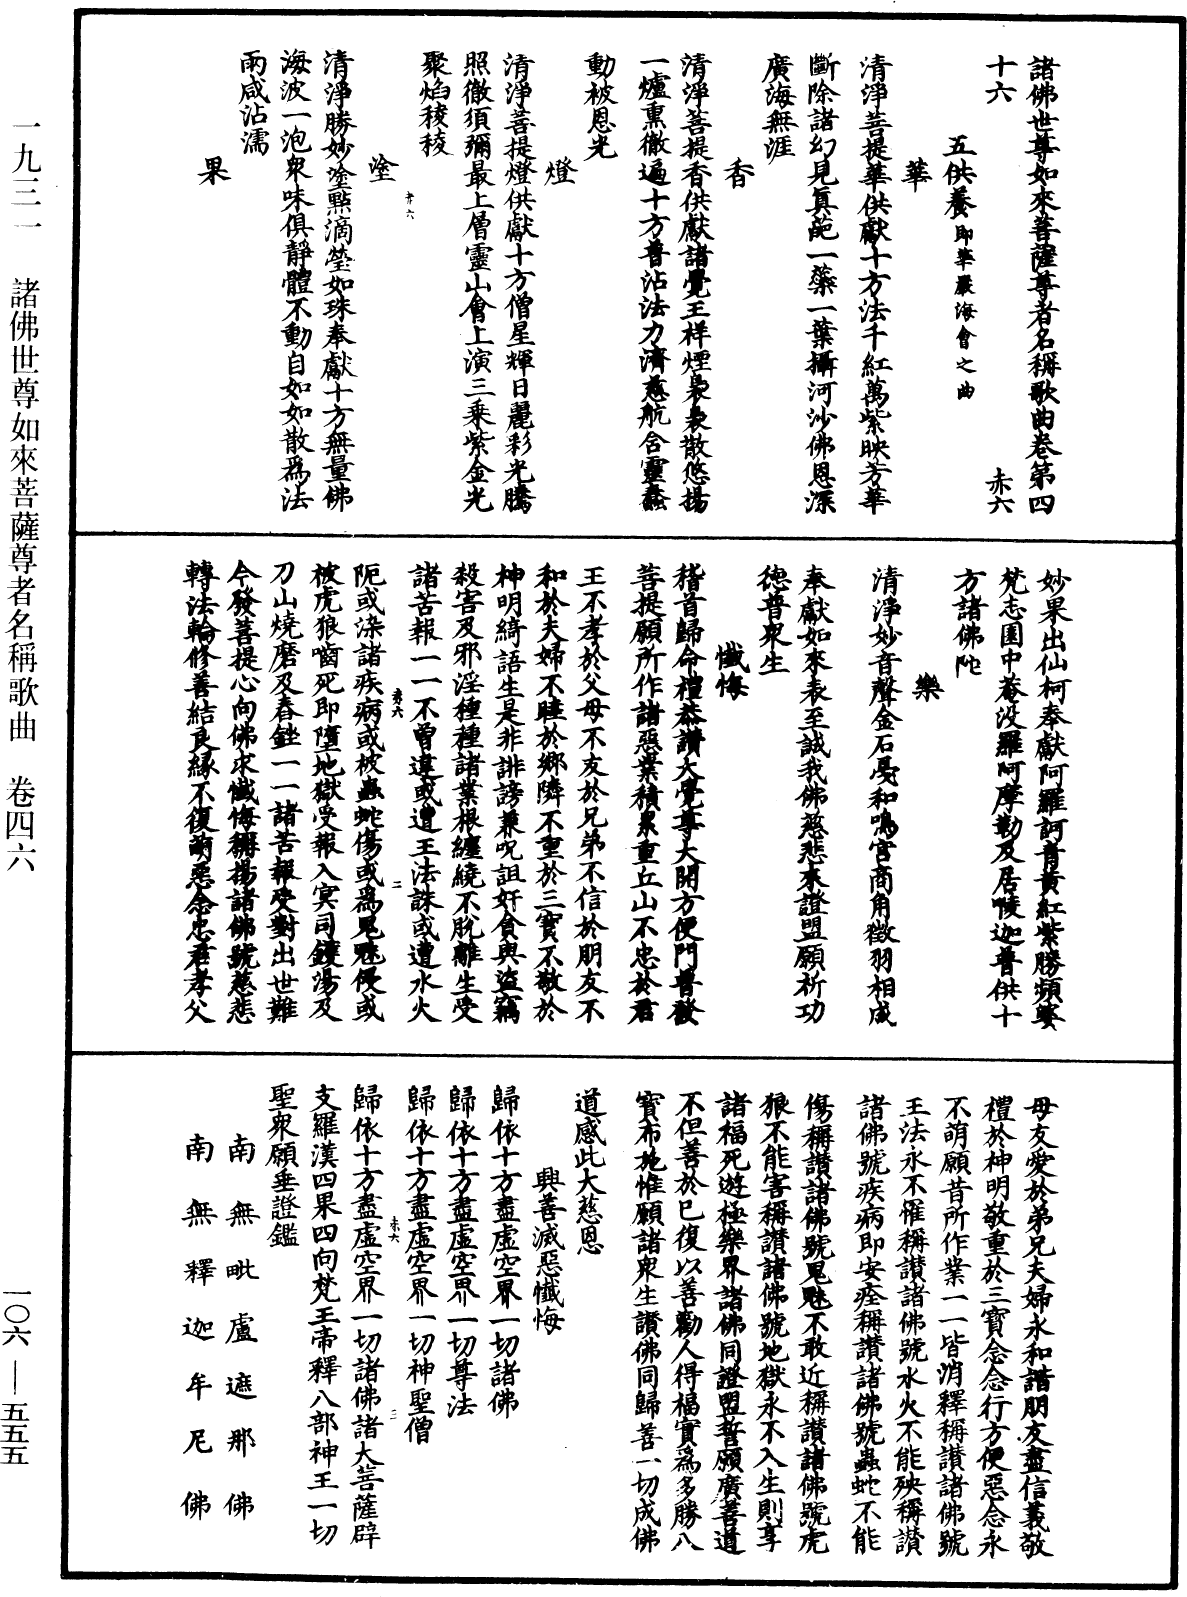 諸佛世尊如來菩薩尊者名稱歌曲卷第四
十六　赤六
五供養即華嚴海會之曲
華
清淨菩提華供獻十方法千紅萬紫映芳華
斷除諸幻見真葩一蘂一葉攝河沙佛恩深
廣海無涯
香
清淨菩提香供獻諸覺王祥煙裊裊散悠揚
一爐熏徹遍十方普沾法力濟慈航含靈蠢
動被恩光
燈
清淨菩提燈供獻十方僧星輝日麗彩光騰
照徹須彌最上層靈山會上演三乘紫金光
聚焰稜稜
塗
清淨勝妙塗點滴瑩如珠奉獻十方無量佛
海波一泡衆味俱靜體不動自如如散爲法
雨咸沾濡
果
妙果出仙柯奉獻阿羅訶青黃紅紫勝頻婆
梵志園中菴没羅阿摩勒及居陵迦普供十
方諸佛陀
樂
清淨妙音聲金石戞和鳴宮商角徵羽相成
奉獻如來表至誠我佛慈悲來證盟願祈功
德普衆生
懺悔
稽首歸命禮恭讚大覺尊大開方便門普發
菩提願所作諸惡業積累重丘山不忠於君
王不孝於父母不友於兄弟不信於朋友不
和於夫婦不睦於鄉隣不重於三寳不敬於
神明綺語生是非誹謗兼呪詛奸貪與盜竊
殺害及邪淫種種諸業根纏繞不脫離生受
諸苦報一一不曾違或遭王法誅或遭水火
阨或染諸疾病或被蟲蛇傷或爲鬼魅侵或
被虎狼嚙死即墮地獄受報入冥司鑊湯及
刀山燒磨及舂銼一一諸苦報受對出世難
今發菩提心向佛求懺悔稱揚諸佛號慈悲
轉法輪修善結良緣不復萌惡念忠君孝父
母友愛於弟兄夫婦永和諧朋友盡信義敬
禮於神明敬重於三寳念念行方便惡念永
不萌願昔所作業一一皆消釋稱讃諸佛號
王法永不罹稱讃諸佛號水火不能殃稱讃
諸佛號疾病即安痊稱讃諸佛號蟲蛇不能
傷稱讃諸佛號鬼魅不敢近稱讃諸佛號虎
狼不能害稱讃諸佛號地獄永不入生則享
諸福死遊極樂界諸佛同證盟誓願廣善道
不但善於已復以善勸人得福實爲多勝八
寳布施惟願諸衆生讃佛同歸善一切成佛
道感此大慈恩
興善滅惡懺悔
歸依十方盡虛空界一切諸佛
歸依十方盡虛空界一切尊法
歸依十方盡虛空界一切神聖僧
歸依十方盡虛空界一切諸佛諸大菩薩辟
支羅漢四果四向梵王帝釋八部神王一切
聖衆願垂證鑑
南無毗盧遮那佛
南無釋迦牟尼佛
一九三一　諸佛世尊如來菩薩尊者名稱歌曲　卷四六
一〇六—五五五